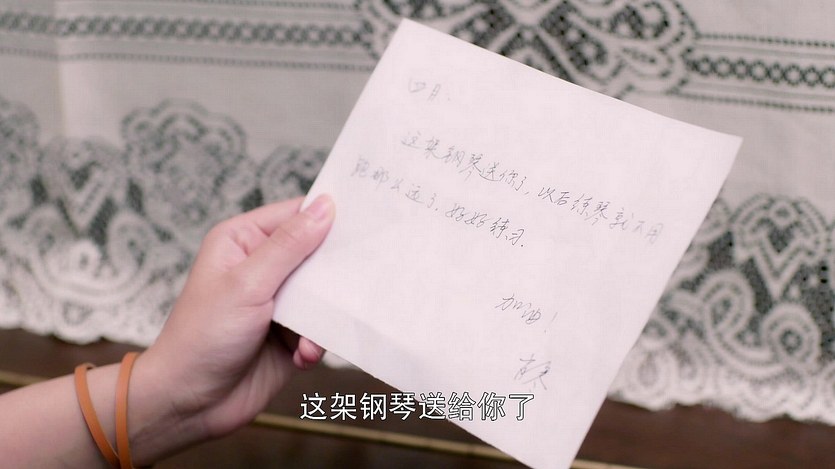 四月.
这架钢琴送你了，以后练琴就不用
跑那么远了、好好练习.
加油！
这架钢琴送给你了